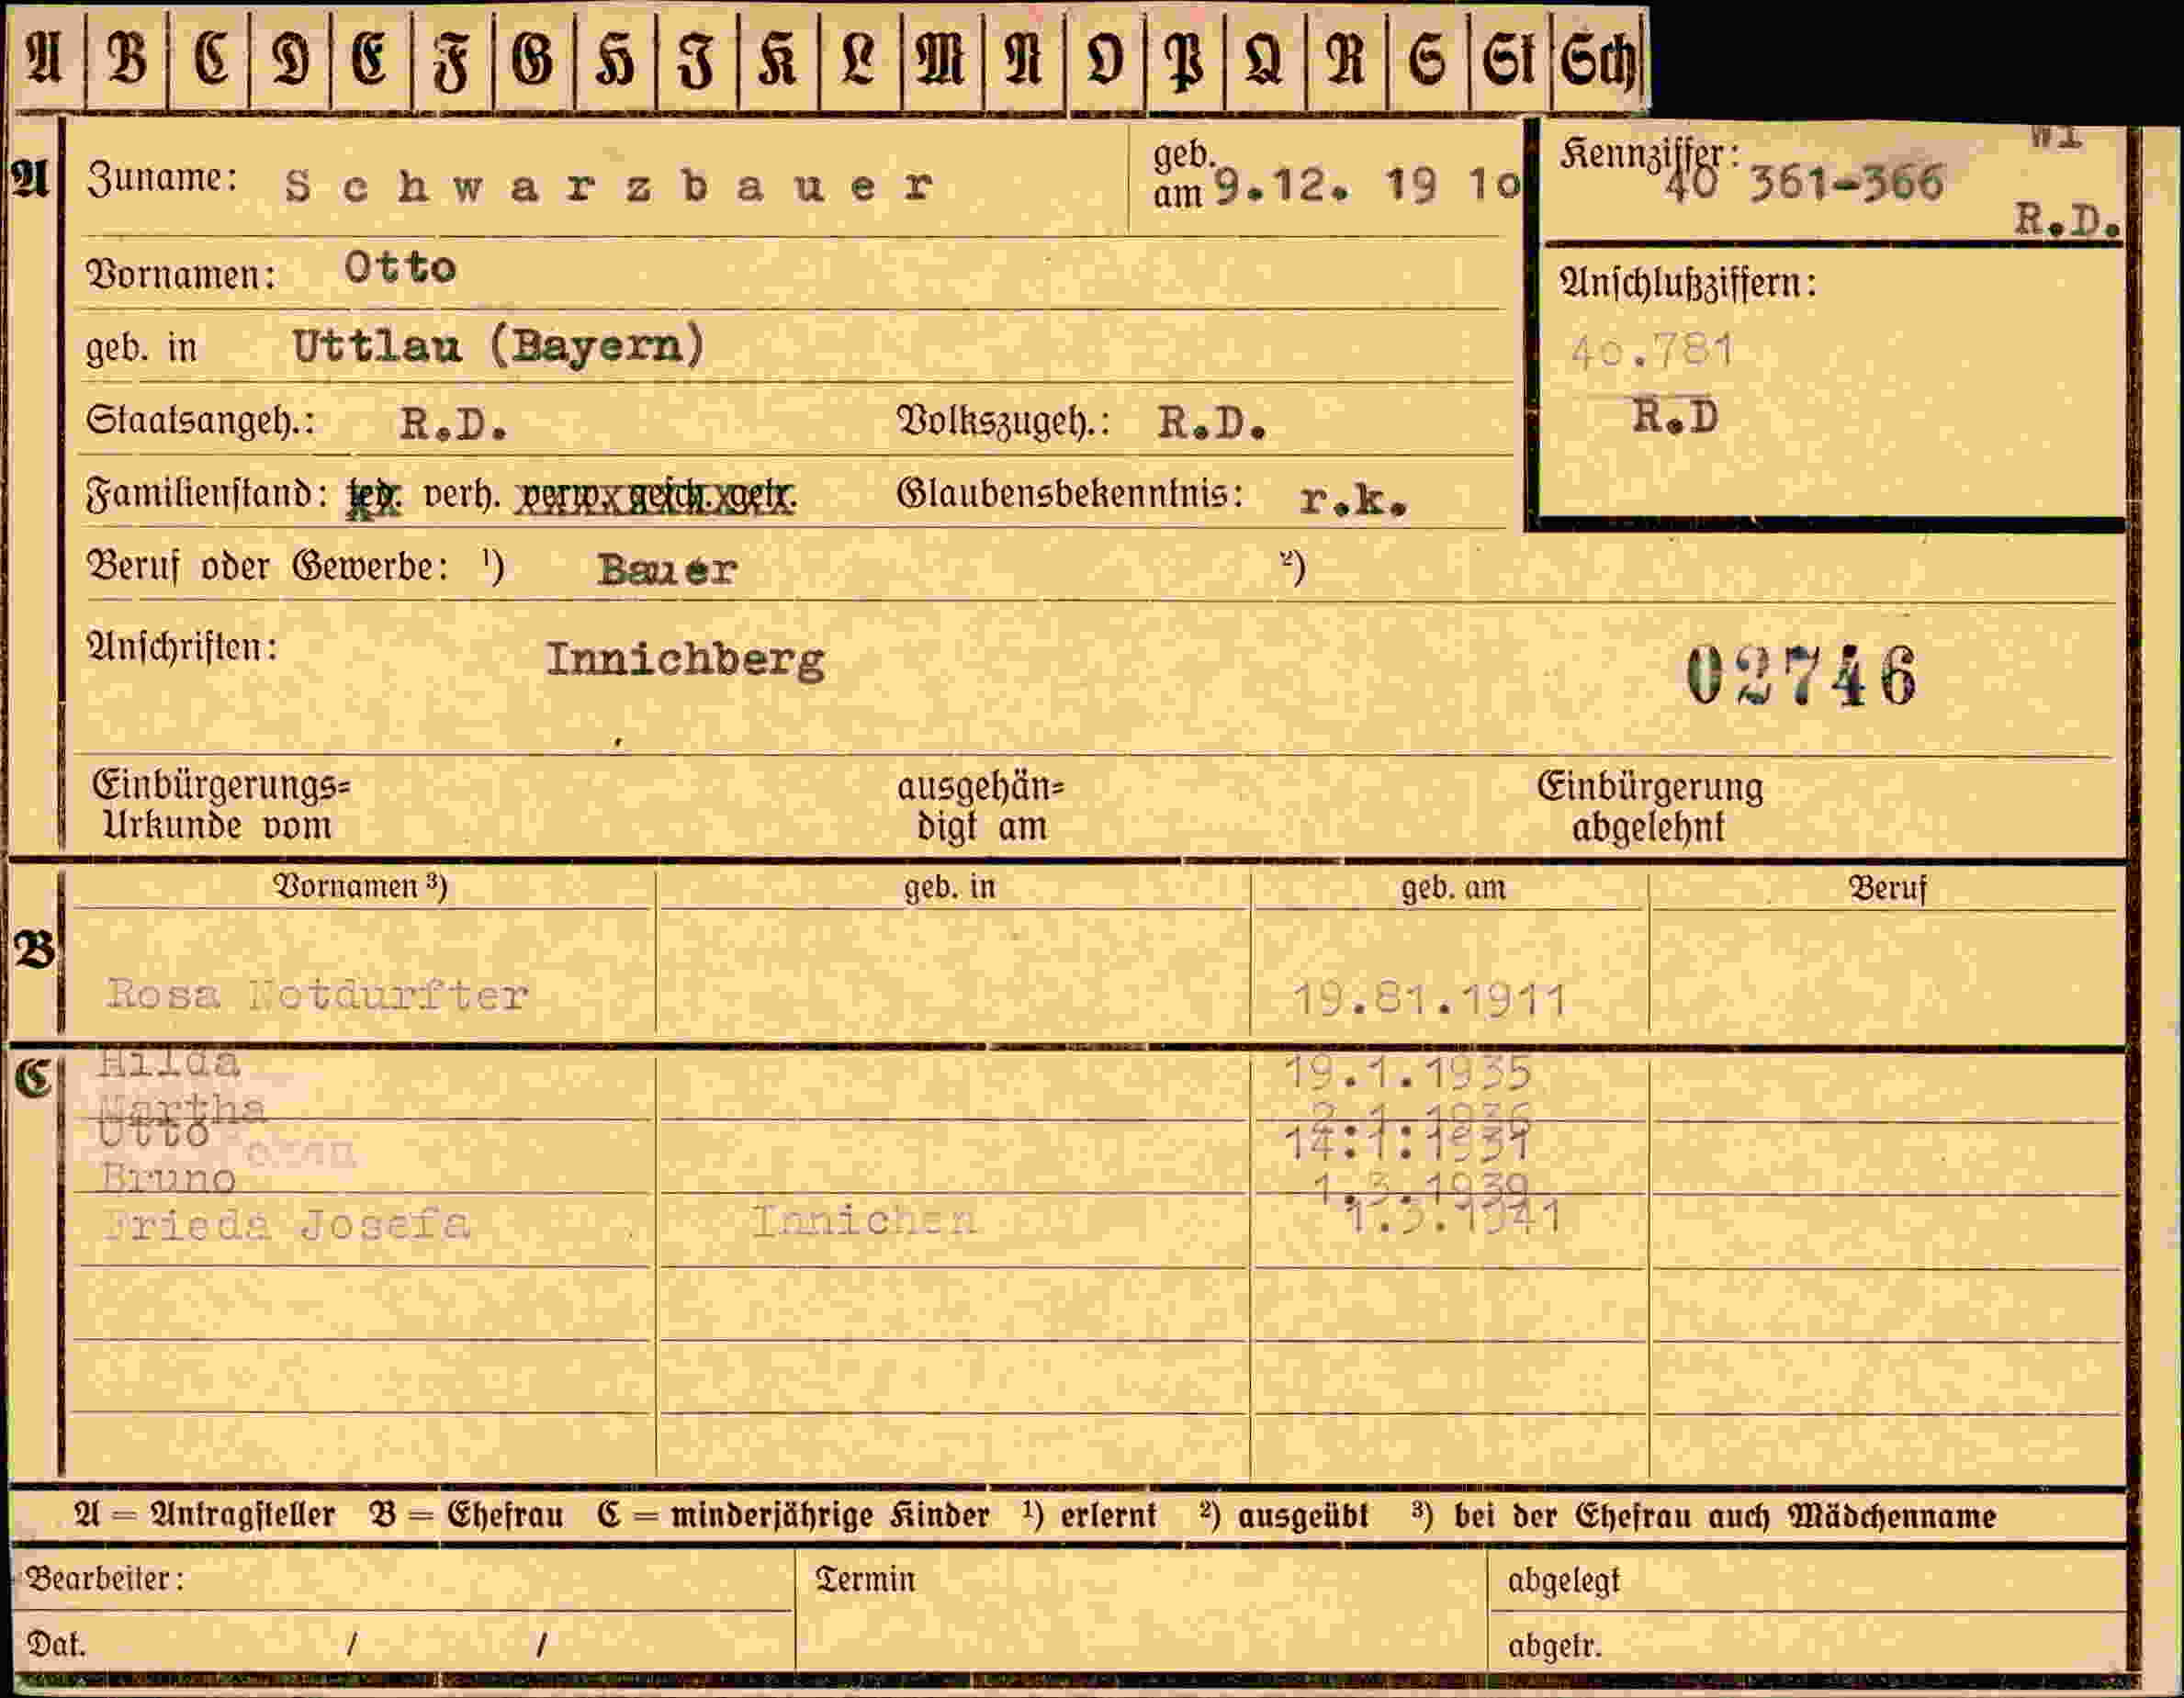 A B C D E F G H J K L M N O P Q R S St Sch
W1
A Zuname: Schwarzbauer geb. am 9.12. 19 10 Kennziffer: 40 361-366
R.D.
Vornamen: Otto
Anschlußziffern:
geb. in Uttlau (Bayern) 40.781
Staatsangeh.: R.D. Volkszugeh.: R.D. R.D
Familienstand: led. verh. verw. gesch. getr. Glaubensbekenntnis: r.k.
Beruf oder Gewerbe: ¹) Bauer ²)
Anschriften: Innichberg 02746
Einbürgerungs= ausgehän= Einbürgerung
Urkunde vom digt am abgelehnt
Vornamen ³) geb. in geb. am Beruf
B
Rosa Notdurfter 19.81.1911
C Hilda 19.1.1935
Martha 2.1.1936
Otto 14.1.
Bruno 1.3.1939
Frieda Josefa Innichen 1.3.1941
A = Antragsteller B = Ehefrau C = minderjährige Kinder ¹) erlernt ²) ausgeübt ³) bei der Ehefrau auch Mädchenname
Bearbeiter: Termin abgelegt
Dat. / / abgetr.